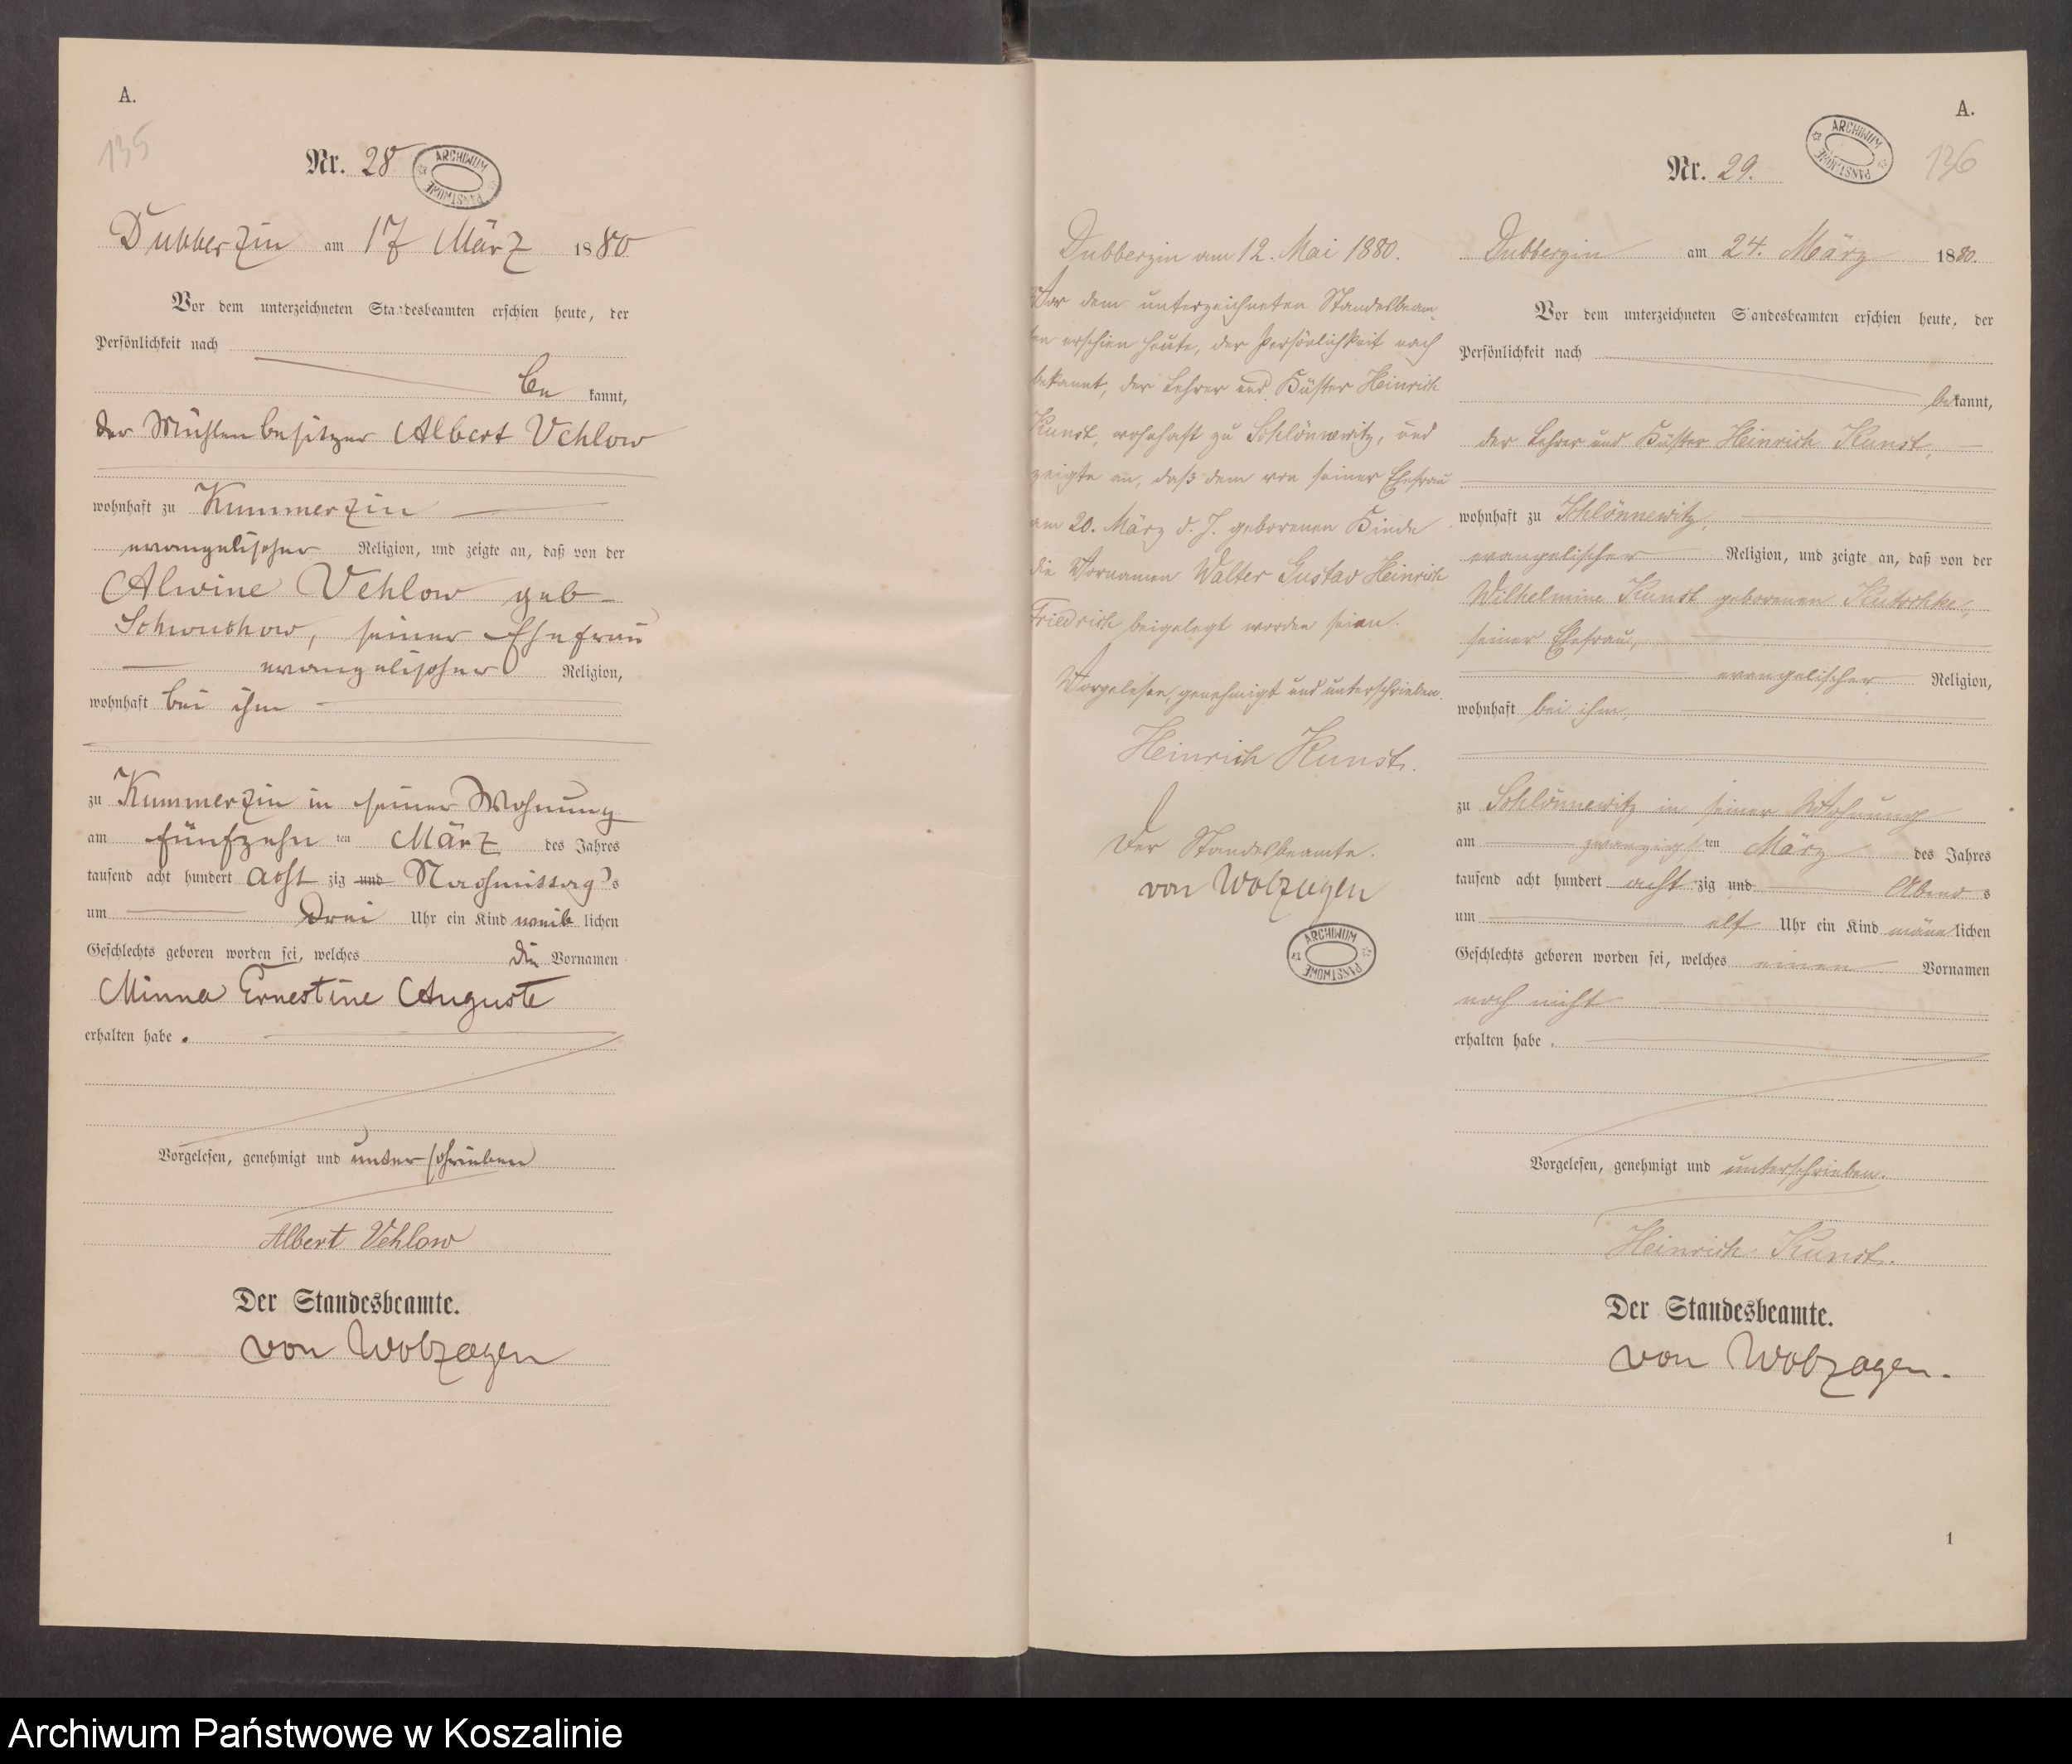 A.
135
Nr. 28
ARCHIWUM PAŃSTWOWE
Dubberzin am 17 März 1880
Vor dem unterzeichneten Standesbeamten erschien heute, der
Persönlichkeit nach
be kannt,
der Mühlenbesitzer Albert Vehlow
wohnhaft zu Kummerzin
evangelischer Religion, und zeigte an, daß von der
Alwine Vehlow geb
seiner Ehefrau
evangelischer Religion,
wohnhaft bei ihm
zu Kummerzin in seiner Wohnung
am fünfzehn ten März des Jahres
tausend acht hundert acht zig und Nachmittag s
um Drei Uhr ein Kind weib lichen
Geschlechts geboren worden sei, welches die Vornamen
Minna Ernestine Auguste
erhalten habe.
Vorgelesen, genehmigt und unterschrieben
Albert Vehlow
Der Standesbeamte.
von Wolzogen
Dubberzin am 12. Mai 1880.
Vor dem unterzeichneten Standesbeam-
ten erschien heute, der Persönlichkeit nach
bekannt, der Lehrer und Küster Heinrich
Kunst, wohnhaft zu Schlönnewitz, und
zeigte an, daß dem von seiner Ehefrau
am 20. März d. J. geborenen Kinde
die Vornamen Walter Gustav Heinrich
Friedrich beigelegt worden seien.
Vorgelesen, genehmigt und unterschrieben.
Heinrich Kunst.
Der Standesbeamte.
von Wolzogen
ARCHIWUM PAŃSTWOWE
A.
136
Nr. 29.
ARCHIWUM PAŃSTWOWE
Dubberzin am 24. März 1880.
Vor dem unterzeichneten Standesbeamten erschien heute, der
Persönlichkeit nach
bekannt,
der Lehrer und Küster Heinrich Kunst,
wohnhaft zu Schlönnewitz,
evangelischer Religion, und zeigte an, daß von der
Wilhelmine Kunst geborenen Kutschke,
seiner Ehefrau,
evangelischer Religion,
wohnhaft bei ihm,
zu Schlönnewitz in seiner Wohnung
am zwanzigsten März des Jahres
tausend acht hundert acht zig und Abend s
um elf Uhr ein Kind männlichen
Geschlechts geboren worden sei, welches einen Vornamen
noch nicht
erhalten habe.
Vorgelesen, genehmigt und unterschrieben.
Heinrich Kunst.
Der Standesbeamte.
von Wolzogen.
1
Archiwum Państwowe w Koszalinie